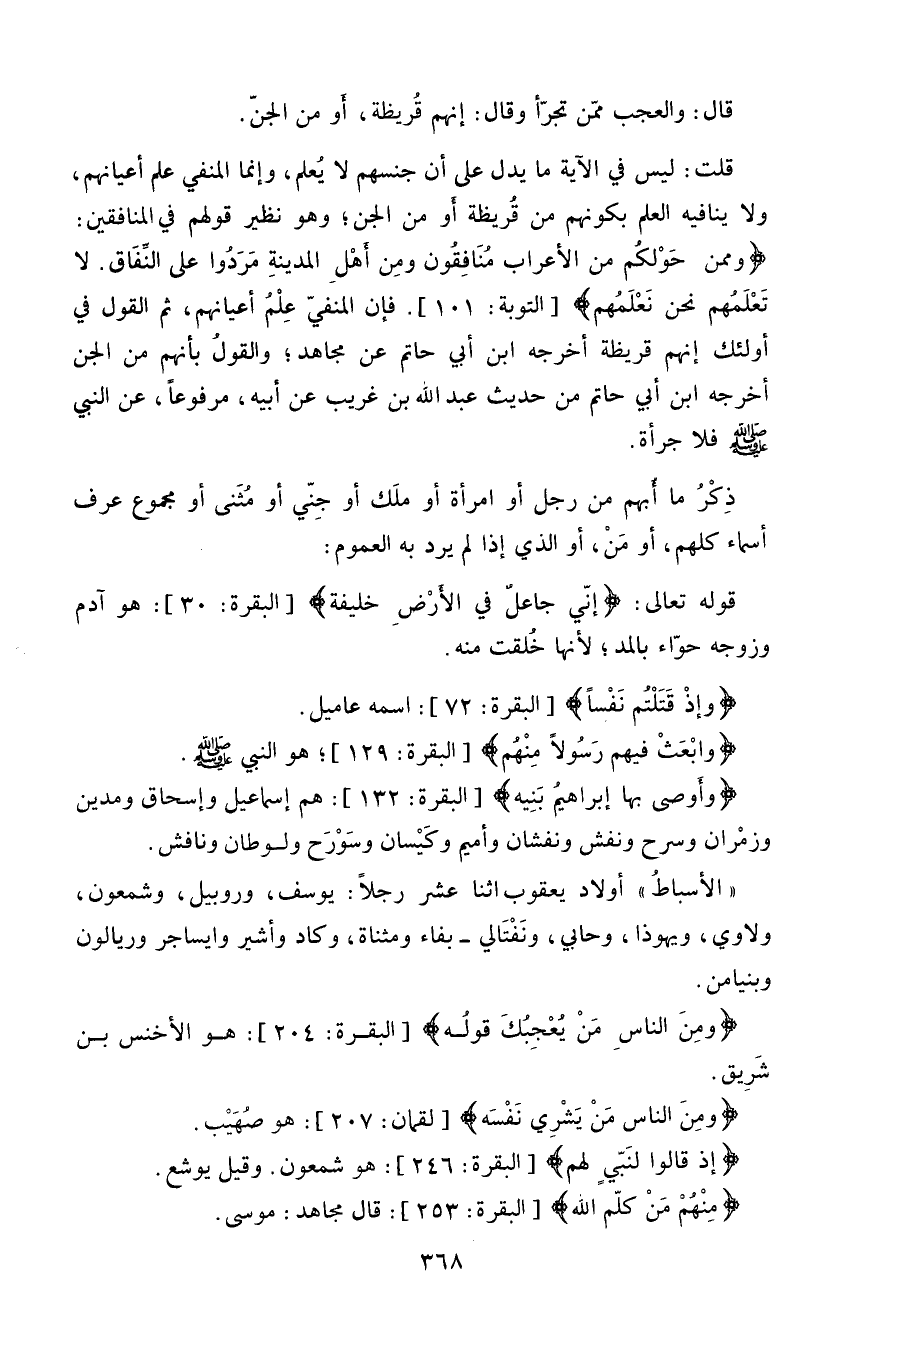 قال: والعجب ممّن تجرّأ وقال: إنهم قُريظة، أَو من الجنّ.
قلت: ليس في الآية ما يدل على أن جنسهم لا يُعلم، وإنما المنفي علم أعيانهم،
ولا ينافيه العلم بكونهم من قُريظة أَو من الجن؛ وهو نظير قولهم في المنافقين:
﴿وممن حَوْلكُم من الأعراب مُنَافِقُون ومِن أَهْلِ المدينةِ مَرَدُوا على النِّفَاق. لا
تَعْلَمُهم نحن نَعْلَمُهم﴾ [التوبة: ١٠١]. فإن المنفيّ عِلْمُ أعيانهم، ثم القول في
أولئك إنهم قريظة أخرجه ابن أبي حاتم عن مجاهد؛ والقولُ بأنهم من الجن
أخرجه ابن أبي حاتم من حديث عبد الله بن غريب عن أبيه، مرفوعاً، عن النبي
ﷺ فلا جرأة.
ذِكْرُ ما أُبهم من رجل أو امرأة أو ملَك أو جِنّي أو مُثَنى أو مجموع عرف
أسماء كلهم، أو مَنْ، أو الذي إذا لم يرد به العموم:
قوله تعالى: ﴿إنّي جاعلٌ في الأَرْضِ خليفة﴾ [البقرة: ٣٠]: هو آدم
وزوجه حوّاء بالمد؛ لأنها خُلقت منه.
﴿وإذْ قَتَلْتُم نَفْساً﴾ [البقرة: ٧٢]: اسمه عاميل.
﴿وابْعَثْ فيهم رَسُولاً مِنْهُم﴾ [البقرة: ١٢٩]؛ هو النبي ﷺ.
﴿وأَوصى بها إبراهيمُ بَنِيه﴾ [البقرة: ١٣٢]: هم إسماعيل وإسحاق ومدين
وزمْران وسرح ونفش ونفشان وأميم وكَيْسان وسَوْرَح ولوطان ونافش.
«الأسباطُ» أولاد يعقوب اثنا عشر رجلاً: يوسف، وروبيل، وشمعون،
ولاوي، ويهوذا، وحابي، ونَفْتَالي - بفاء ومثناة، وكاد وأشير وايساجر وريالون
وبنيامن.
﴿ومِنَ الناسِ مَنْ يُعْجِبُكَ قولُه﴾ [البقرة: ٢٠٤]: هو الأخنس بن
شَرِيق.
﴿ومِنَ الناس مَنْ يَشْرِي نَفْسَه﴾ [لقمان: ٢٠٧]: هو صُهَيْب.
﴿إذ قالوا لنَبّيٍ لهم﴾ [البقرة: ٢٤٦]: هو شمعون. وقيل يوشع.
﴿مِنْهُمْ مَنْ كلّم الله﴾ [البقرة: ٢٥٣]: قال مجاهد: موسى.
٣٦٨